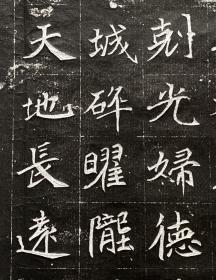 剋光婦德
城碎曜隴
天地長遠